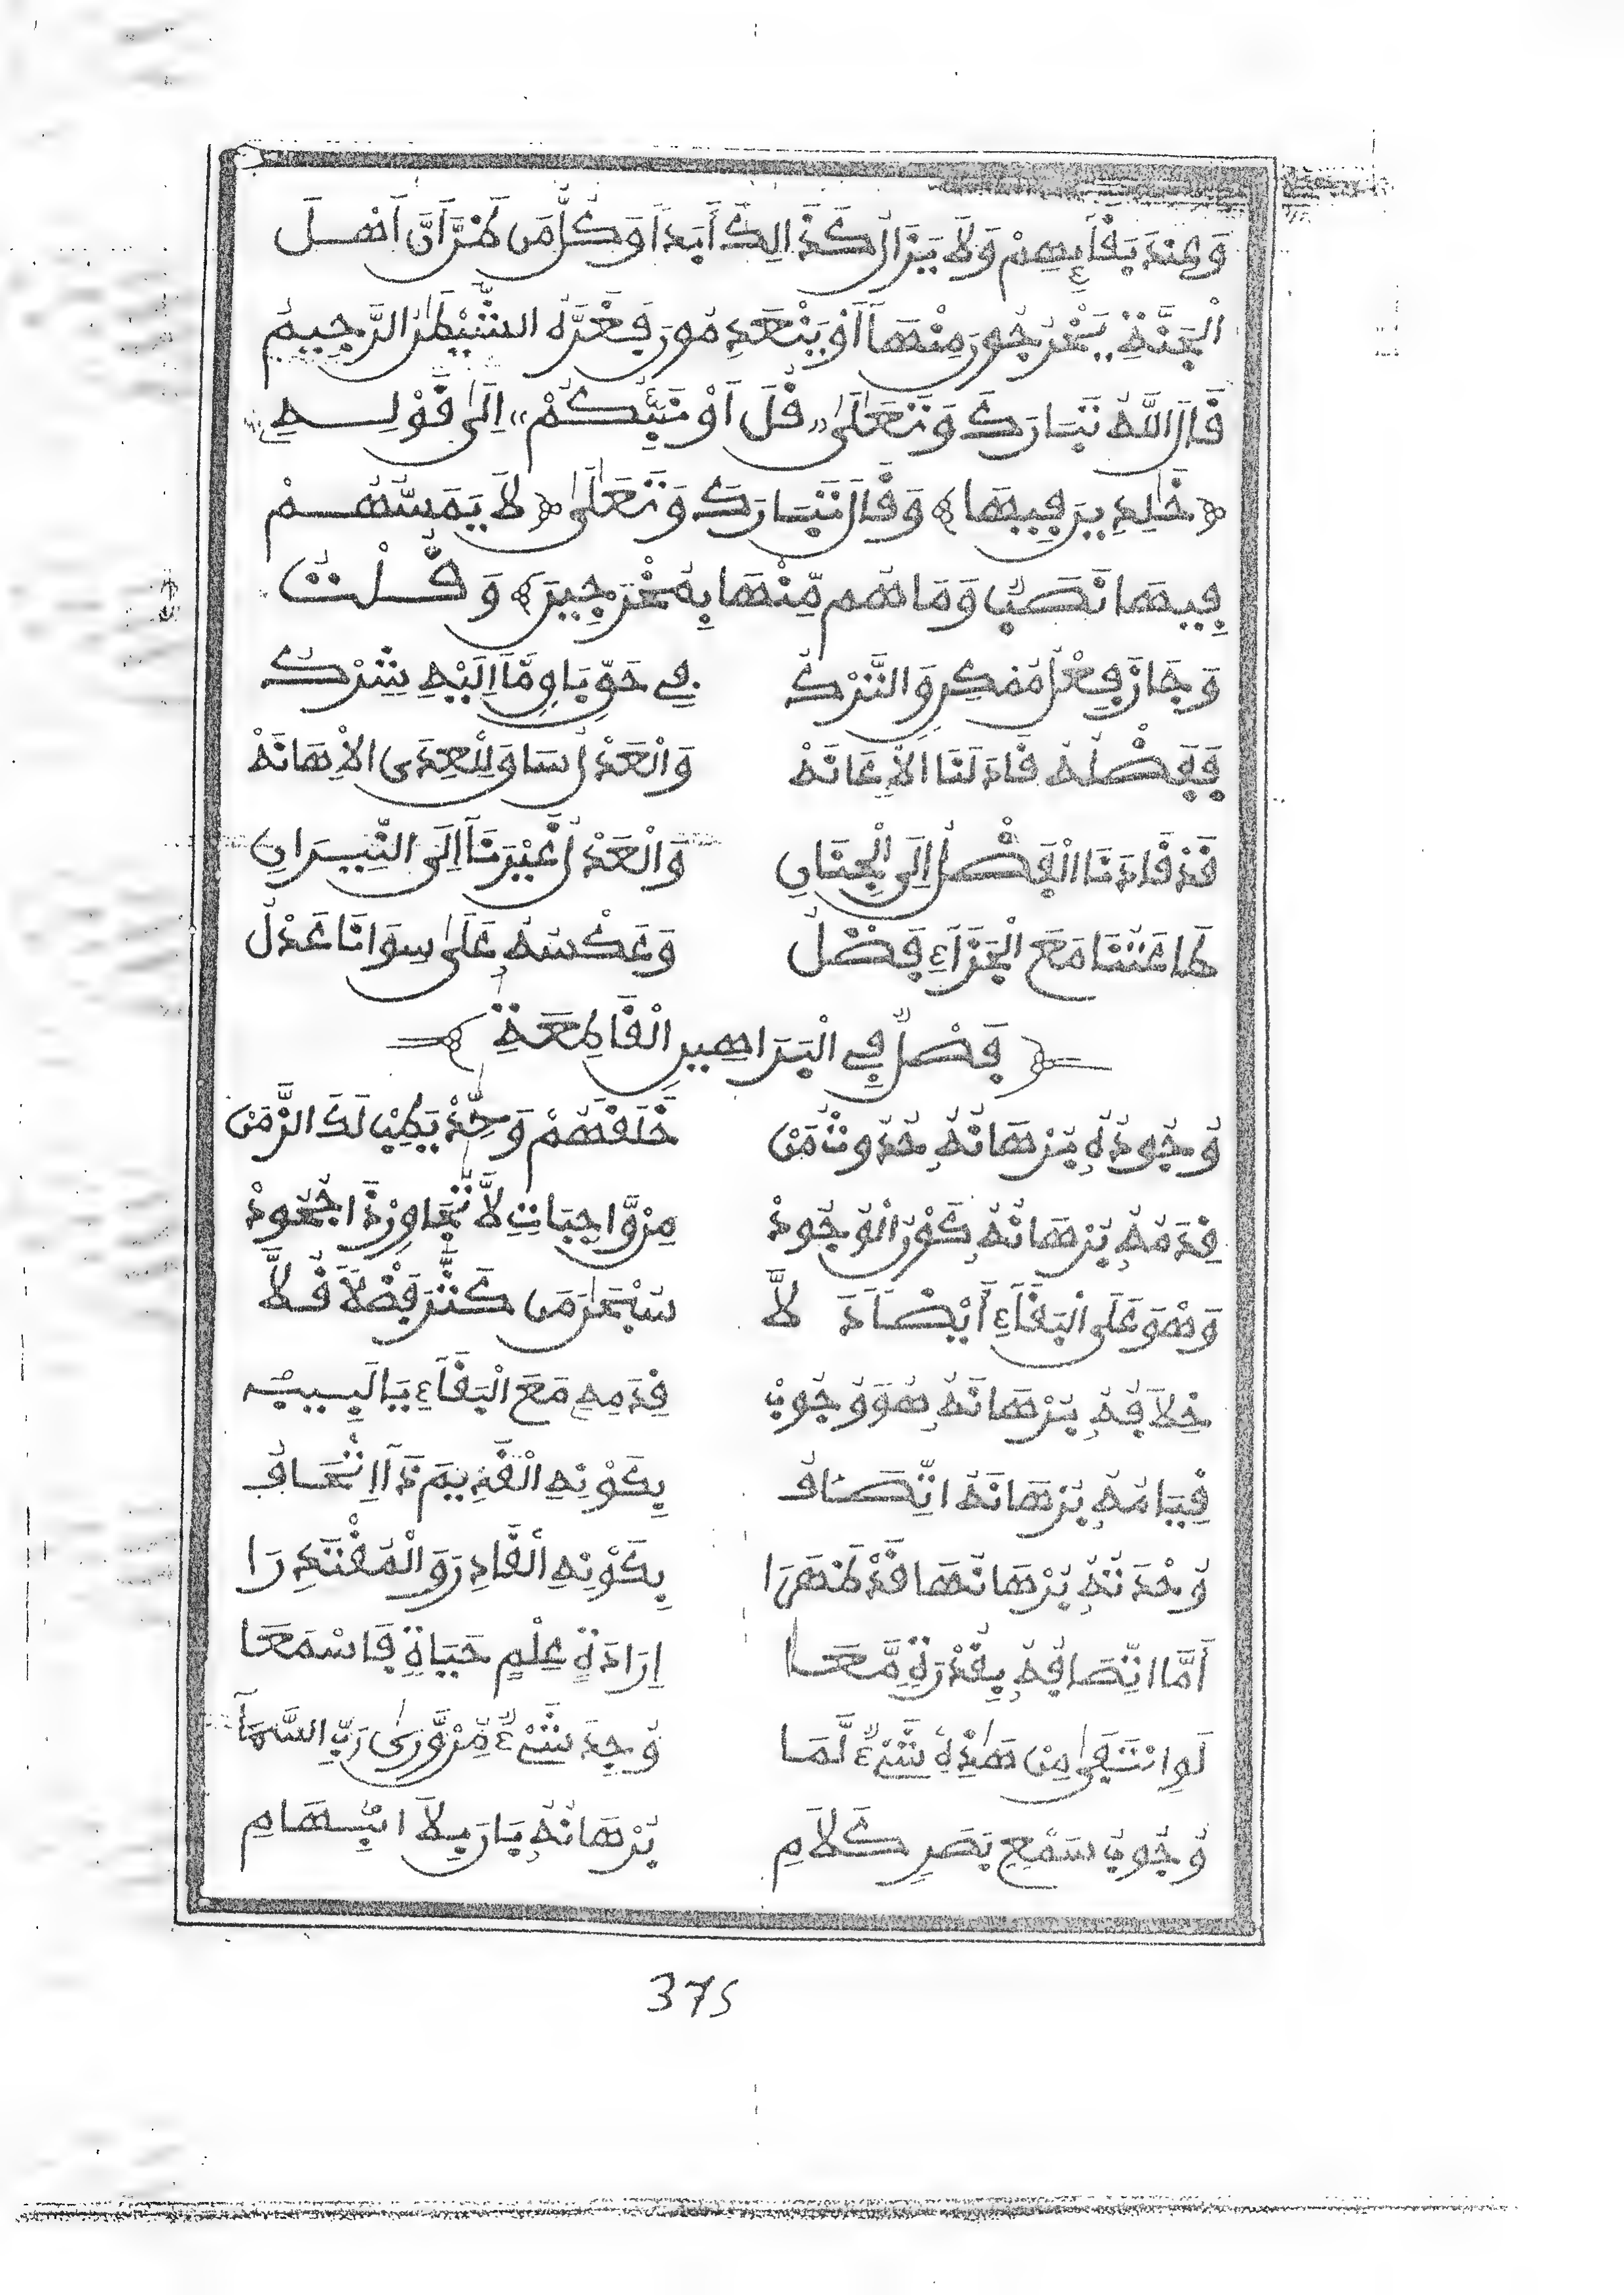 وَعِندَ بَقَآئِهِمْ وَلاَ يَزَالُ كَذَالِكَ أَبَداً وَكُلُّ مَن ظَنَّ أَنَّ أَهْلَ
الْجَنَّةِ يَخْرُجُونَ مِنْهَا أَوْ يَنْعَدِمُونَ فَغَرَّهُ الشَّيْطَٰنُ الرَّجِيمُ
قَالَ اللَّهُ تَبَارَكَ وَتَعَلَىٰ «قُلَ اَوْ نَبِّئُكُمْ» اِلَىٰ قَوْلِهِ
﴿خَٰلِدِينَ فِيهَا﴾ وَقَالَ تَبَارَكَ وَتَعَلَىٰ ﴿لاَ يَمَسُّهُمْ
فِيهَا نَصَبٌ وَمَا هُم مِّنْهَا بِمُخْرَجِينَ﴾ وَقُلْتُ
وَجَازَ فِعْلُ مُمْكِنٍ وَالتَّرْكُ فِي حَقِّ بَاقٍ مَّا اِلَيْهِ شِرْكُ
فَفَضْلُهُ قَادَ لَنَا الاِعَانَهْ وَالْعَدْلُ سَاقَ لِلْعِدَى الاِهَانَهْ
قَدْ قَادَنَا الْفَضْلُ إِلَى الْجِنَانِ وَالْعَدْلُ غَيْرَنَا إِلَى النِّيرَانِ
طَاعَتُنَا مَعَ الْجَزَآءِ فَضْلُ وَعَكْسُهُ عَلَىٰ سِوَانَا عَدْلُ
فَصْلٌ فِي الْبَرَاهِينِ الْقَاطِعَةِ
وُجُودُهُ بُرْهَانُهُ حُدُوثُ مَنْ خَلَقَهُمْ وَحِّدْ يَطِبْ لَكَ الزَّمَنْ
قِدَمُهُ بُرْهَانُهُ كَوْنُ الْوُجُودْ مِن وَّاجِبَاتِ لَّا تُجَاوِرْ ذَا جُحُودْ
وَهْوَ عَلَى الْبَقَآءِ أَيْضًا دَلاَّ سُبْحَٰنَ مَن كَثَّرَ فَضْلاً قُلاَّ
خِلاَفُهُ بُرْهَانُهُ هُوَ وُجُوبْ قِدَمِهِ مَعَ الْبَقَآءِ يَا لَبِيبْ
قِيَامُهُ بُرْهَانُهُ اتِّصَافُ بِكَوْنِهِ الْقَدِيمَ ذَا إِتْحَافِ
وُحْدَتُهُ بُرْهَانُهَا قَدْ ظَهَرَا بِكَوْنِهِ الْقَادِرَ وَالْمُقْتَدِرَا
أَمَّا اتِّصَافُهُ بِقُدْرَةٍ مَّعَا إِرَادَةٍ عِلْمٍ حَيَاةٍ فَاسْمَعَا
لَوِ انْتَفَىٰ مِنْ هَٰذِهِ شَيْءٌ لَّمَا وُجِدَ شَيْءٌ مِّن وَّرَىٰ رَبِّ السَّمَا
وُجُوبُ سَمْعٍ بَصَرٍ كَلاَمِ بُرْهَانُهُ بَانَ بِلاَ انْبِهَامِ
375